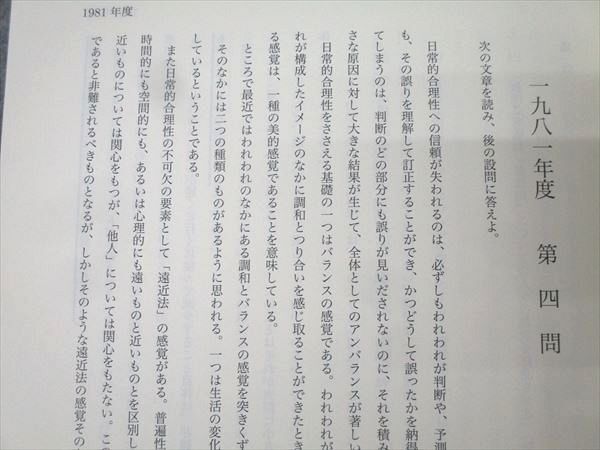 1981年度
一九八一年度　第四問
次の文章を読み、後の設問に答えよ。
日常的合理性への信頼が失われるのは、必ずしもわれわれが判断や、予測
も、その誤りを理解して訂正することができ、かつどうして誤ったかを納得
てしまうのは、判断のどの部分にも誤りが見いだされないのに、それを積み
さな原因に対して大きな結果が生じて、全体としてのアンバランスが著しい
日常的合理性をささえる基礎の一つはバランスの感覚である。われわれが
れが構成したイメージのなかに調和とつり合いを感じ取ることができたとき
る感覚は、一種の美的感覚であることを意味している。
ところで最近ではわれわれのなかにある調和とバランスの感覚を突きくず
そのなかには二つの種類のものがあるように思われる。一つは生活の変化
しているということである。
また日常的合理性の不可欠の要素として「遠近法」の感覚がある。普遍性
時間的にも空間的にも、あるいは心理的にも遠いものと近いものとを区別し
近いものについては関心をもつが、「他人」については関心をもたない。こ
であると非難されるべきものとなるが、しかしそのような遠近法の感覚その